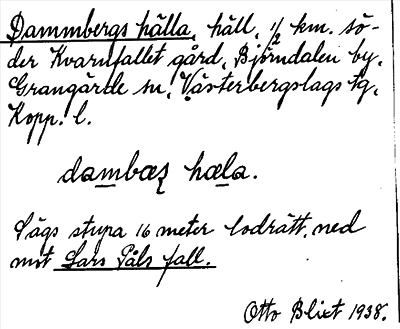 Dammbergs hälla, häll, 1/2 km. sö-
der Kvarnfallet gård, Björndalen by,
Grangärde sn, Västerbergslags tg,
Kopp. l.
dambæʐ hæla.
Sägs stupa 16 meter lodrätt, ned
mot Lars Påls fall.
Otto Blixt 1938.